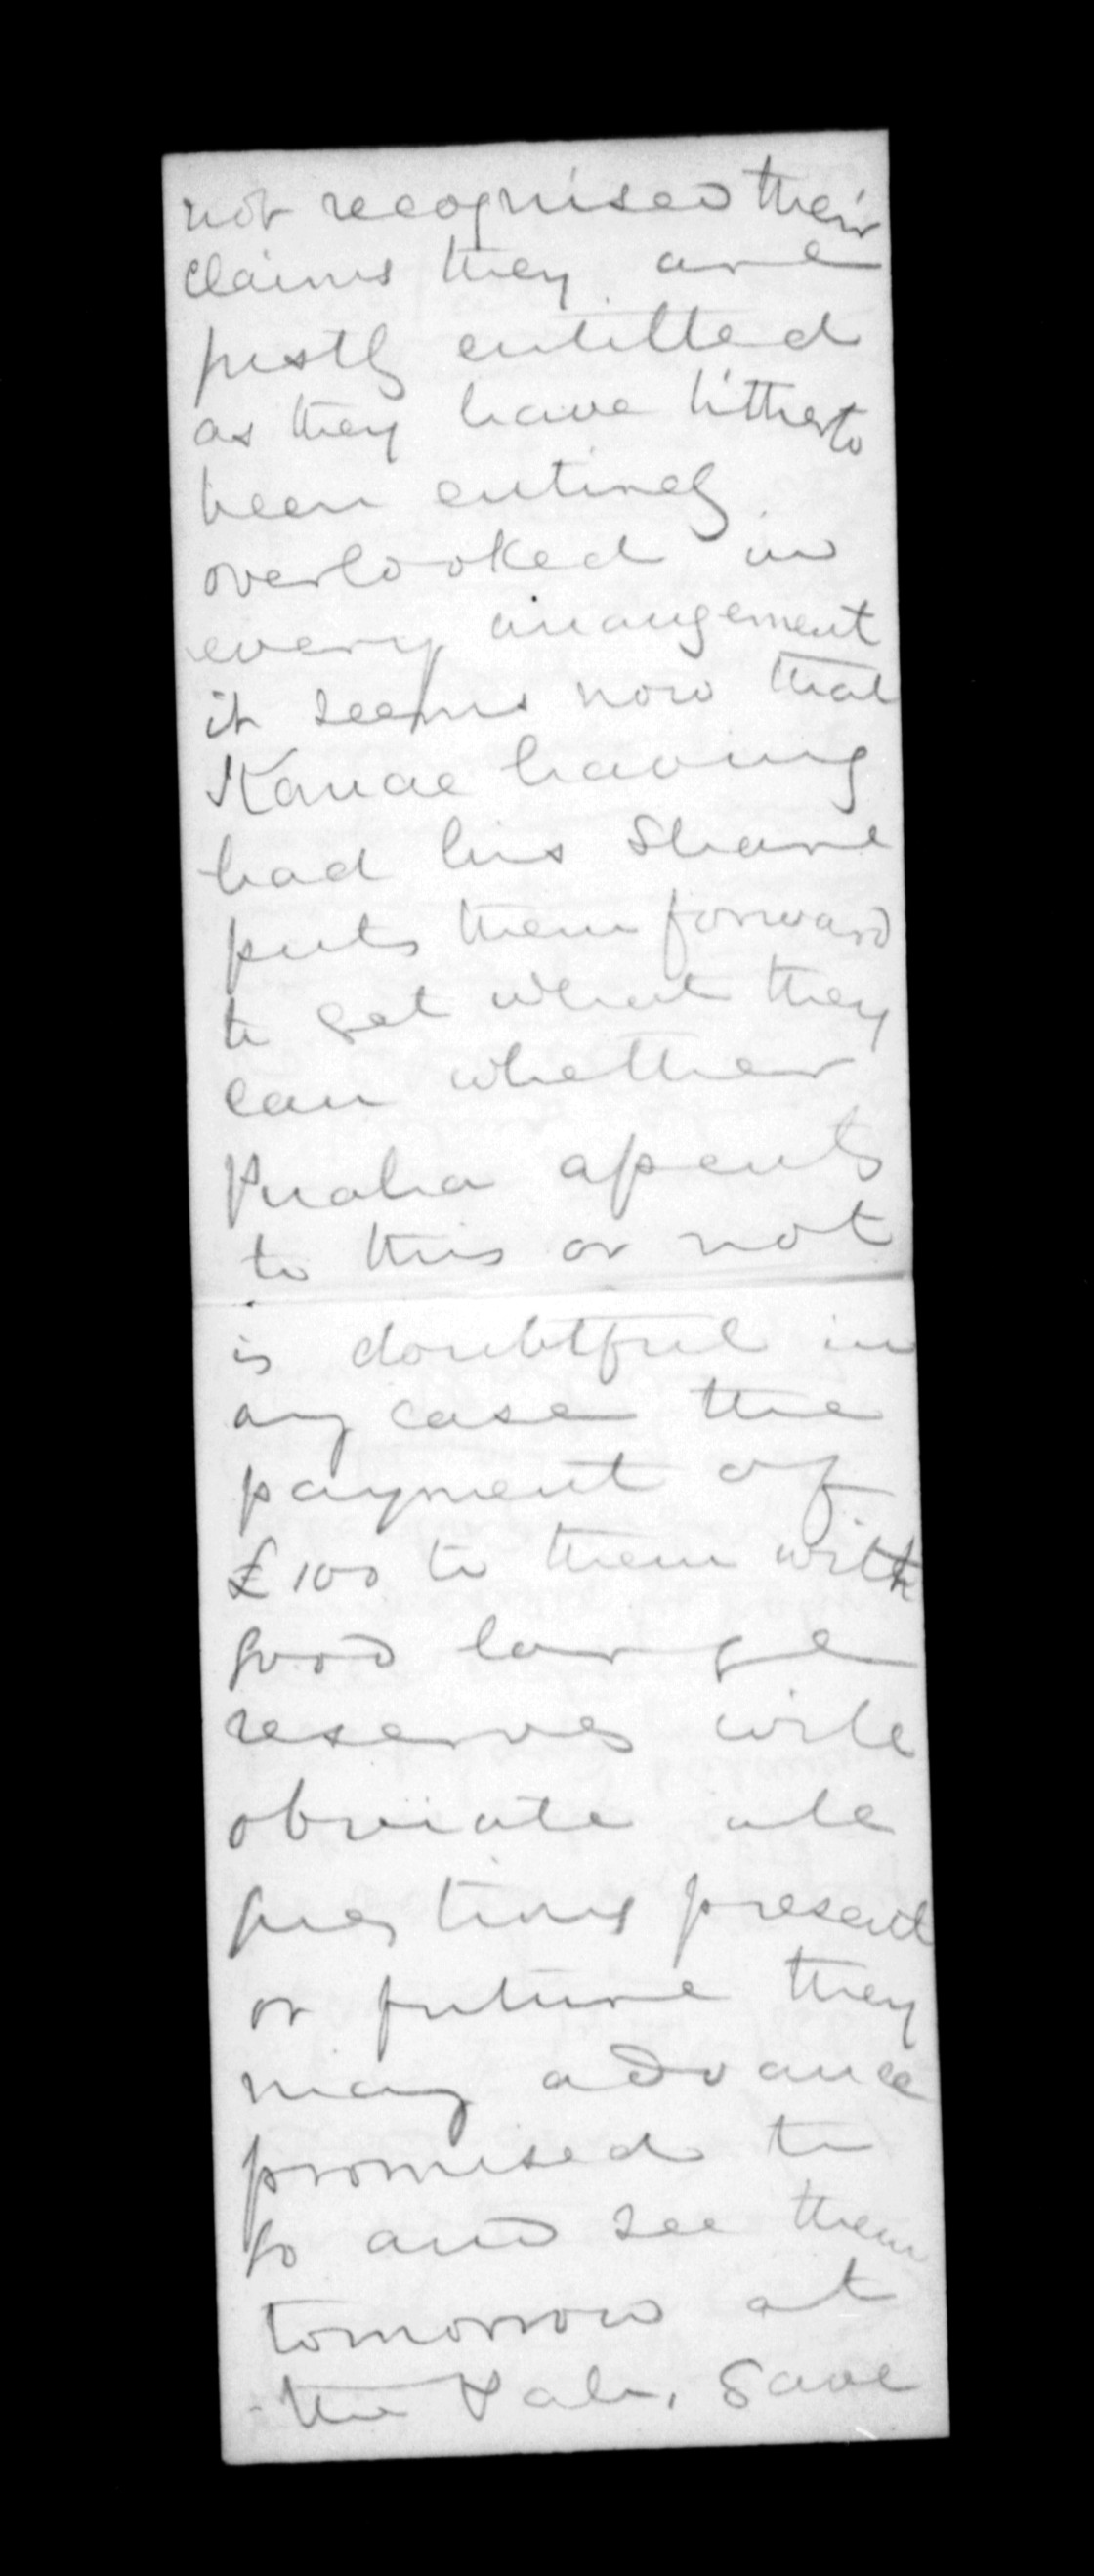 not recognised their
claims they are
justly entitled
as they have hitherto
been entirely
overlooked in
every arrangement
it seems now that
Kanae having
had his share
puts them forward
to get what they
can whether
Puaha assents
to this or not
is doubtful in
any case the
payment of
£100 to them with
good large
reserves will
obviate all
questions present
or future they
may advance
promised to
go and see them
tomorrow at
the Pah. Gave